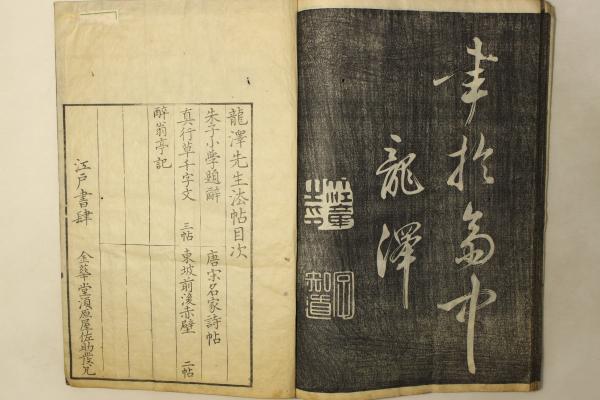 書於富中
龍澤
知道
龍澤先生法帖目次
朱子小學題辭
唐宋名家詩帖
真行草千字文 三帖
東坡前後赤壁 二帖
醉翁亭記
江戸書肆
金華堂須原屋佐助發兌